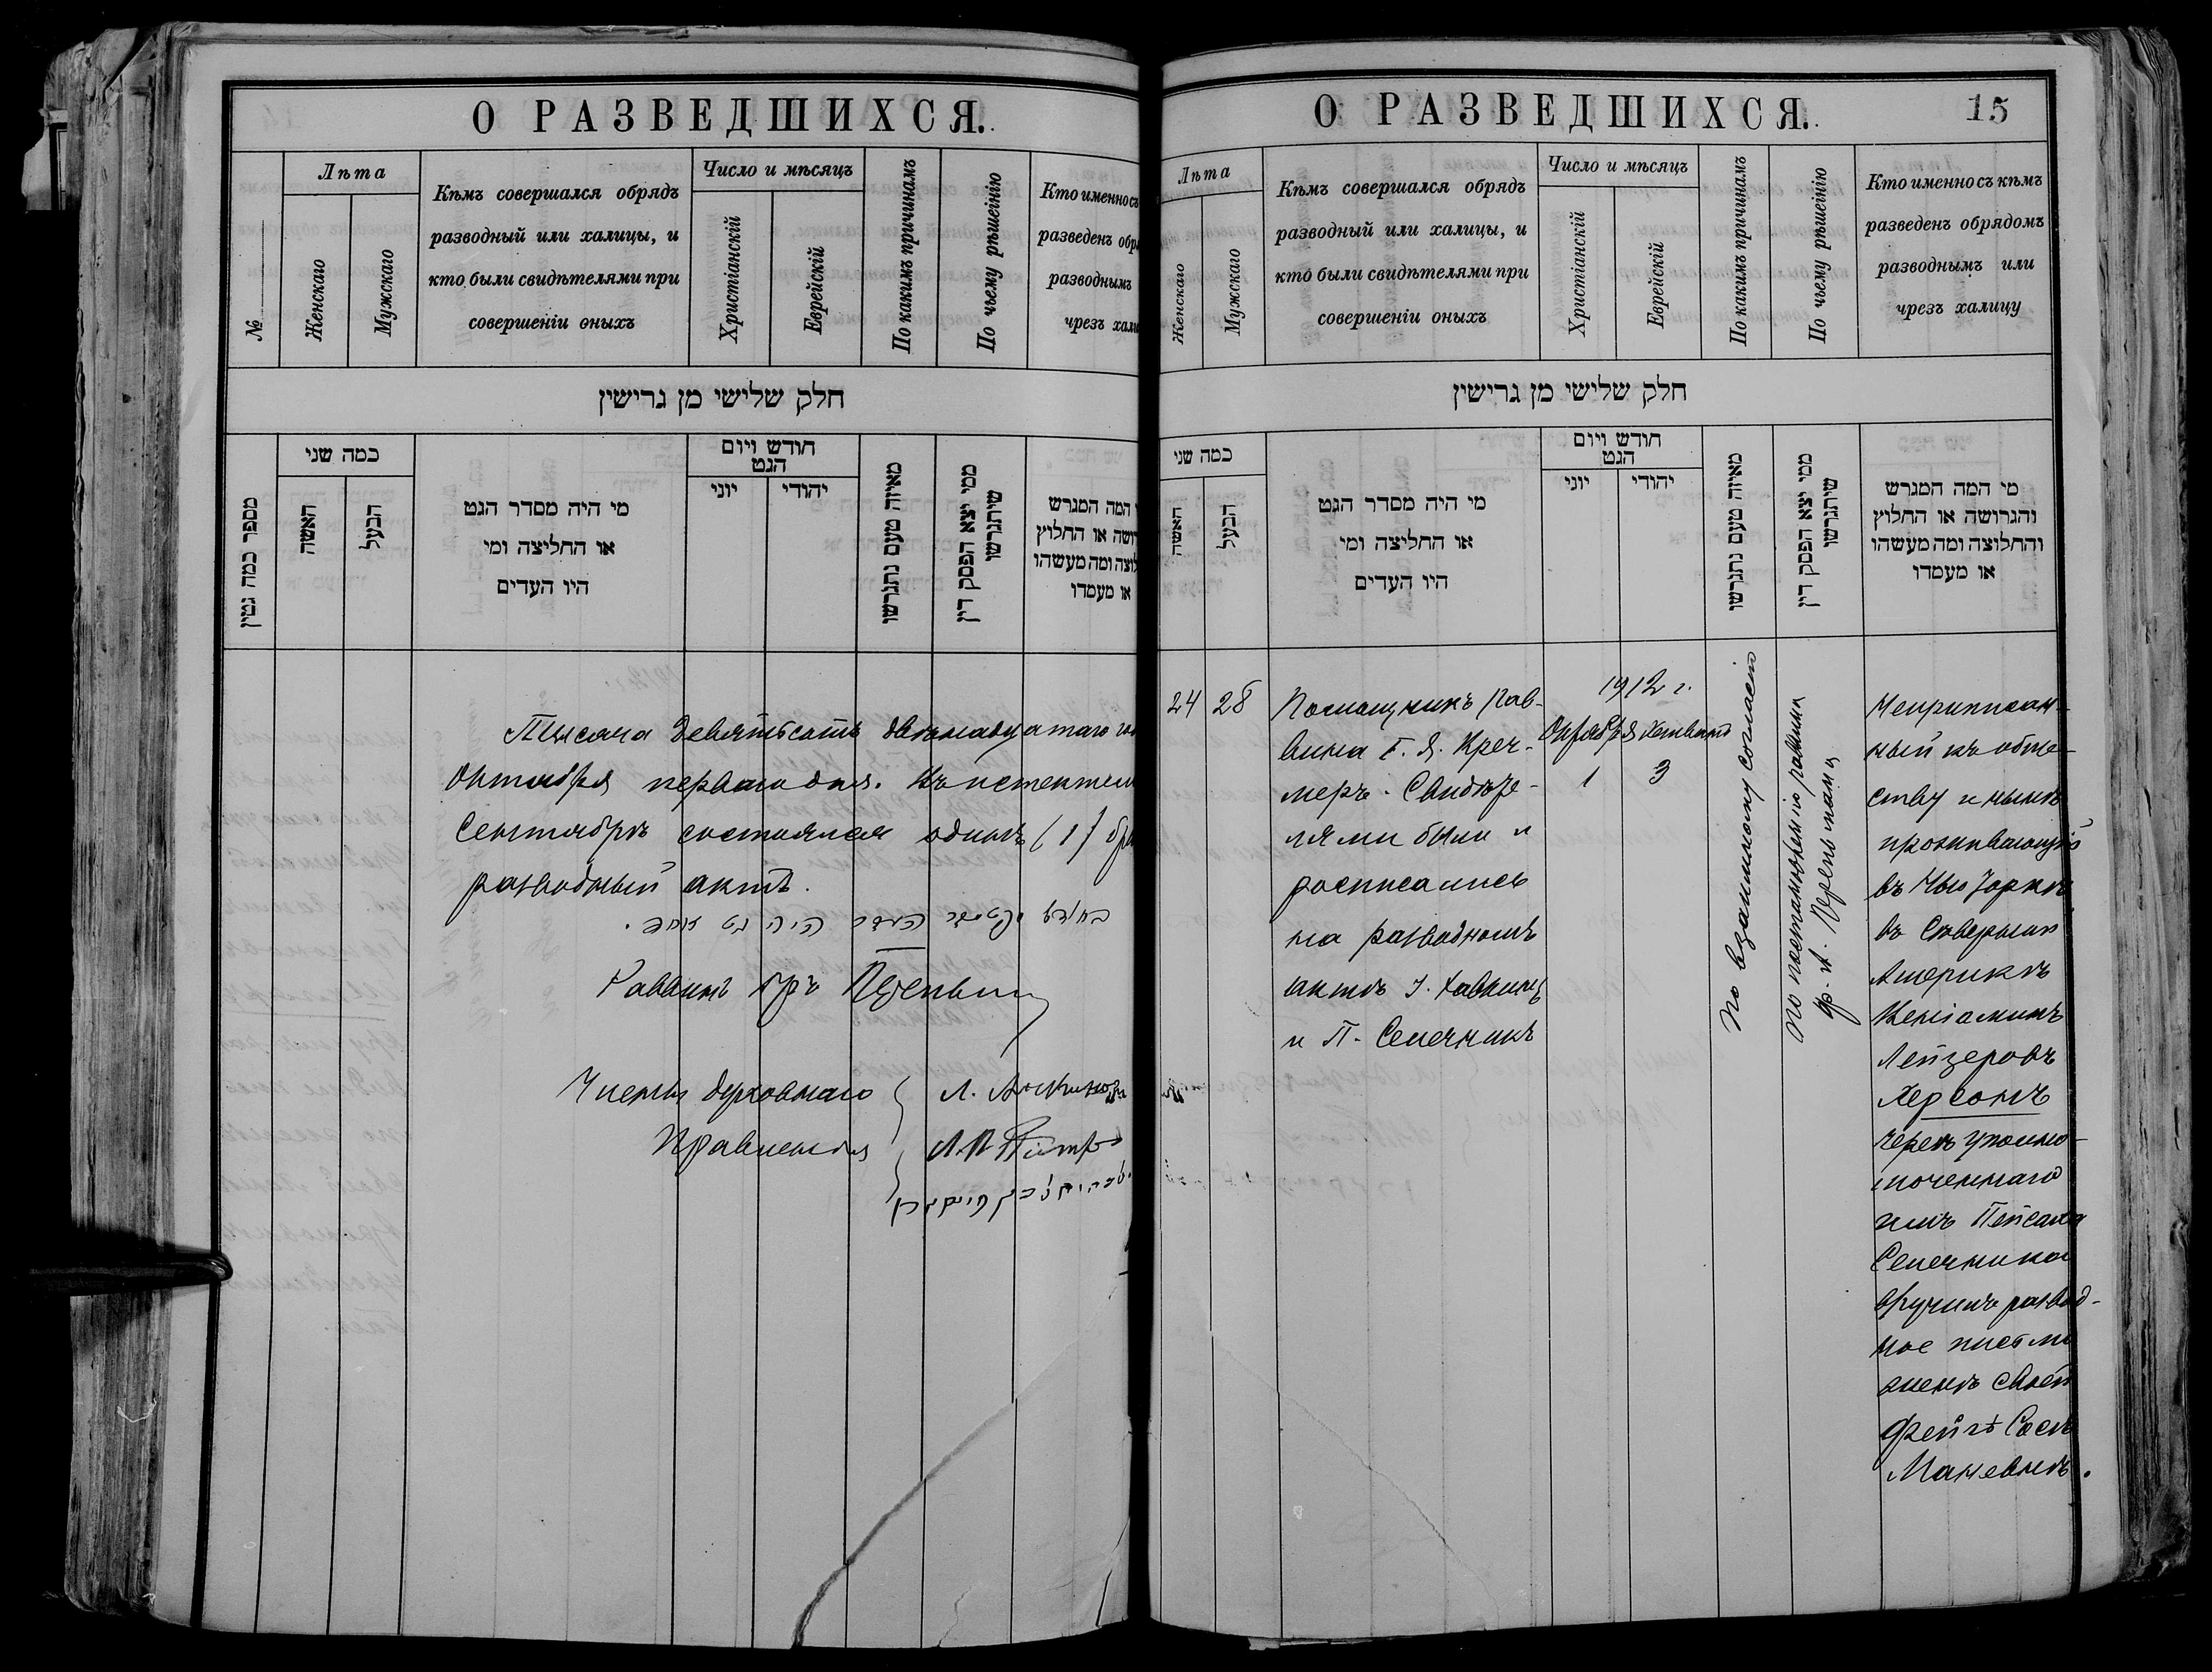 О РАЗВЕДШИХСЯ.
№
Лѣта
Женскаго
Мужскаго
Кѣмъ совершался обрядъ
разводный или халицы, и
кто были свидѣтелями при
совершеніи оныхъ
Число и мѣсяцъ
Христіанскій
Еврейскій
По какимъ причинамъ
По чьему рѣшенію
Кто именно съ
разведенъ обр
разводнымъ
чрезъ хали
חלק שלישי מן גרישין
מספר כמה גטין
כמה שני
האשה
הבעל
מי היה מסדר הגט
או החליצה ומי
היו העדים
חודש ויום
הגט
יוני
יהודי
מאיזה טעם נתגרשו
ממי יצא הפסק דין
שיתגרשו
המה המגרש
רושה או החלוץ
לוצה ומה מעשהו
או מעמדו
Тысяча девятьсотъ двѣнадцатаго го
Октября перваго дня. Въ истекшем
Сентябрѣ состоялся одинъ (1) бра
разводный актъ.
Раввинъ
Члены духовнаго
Правленія
О РАЗВЕДШИХСЯ.
15
Лѣта
Женскаго
Мужскаго
Кѣмъ совершался обрядъ
разводный или халицы, и
кто были свидѣтелями при
совершеніи оныхъ
Число и мѣсяцъ
Христіанскій
Еврейскій
По какимъ причинамъ
По чьему рѣшенію
Кто именно съ кѣмъ
разведенъ обрядомъ
разводнымъ или
чрезъ халицу
חלק שלישי מן גרישין
כמה שני
האשה
הבעל
מי היה מסדר הגט
או החליצה ומי
היו העדים
חודש ויום
הגט
יוני
יהודי
מאיזה טעם נתגרשו
ממי יצא הפסק דין
שיתגרשו
מי המה המגרש
והגרושה או החלוץ
והחלוצה ומה מעשהו
או מעמדו
24
28
Помощникъ Рав-
вина Г. Я. Креч-
меръ. Свидѣте-
лями были и
росписались
на разводномъ
актѣ І. Хавкинъ
и П. Сепечникъ
1912 г.
Октября Хешвана
1 3
По взаимному согласію
По постановленію раввина
Неприписан-
ный къ обще-
ству и нынѣ
проживающій
въ Нью Іоркѣ
въ Сѣверной
Америкѣ
Веніаминъ
Лейзеровъ
Херсонъ
черезъ уполно-
моченнаго
имъ Пейсаха
Сепечника
вручилъ развод-
ное письмо
женѣ своей
Фейгѣ Сосѣ
Маневнѣ.